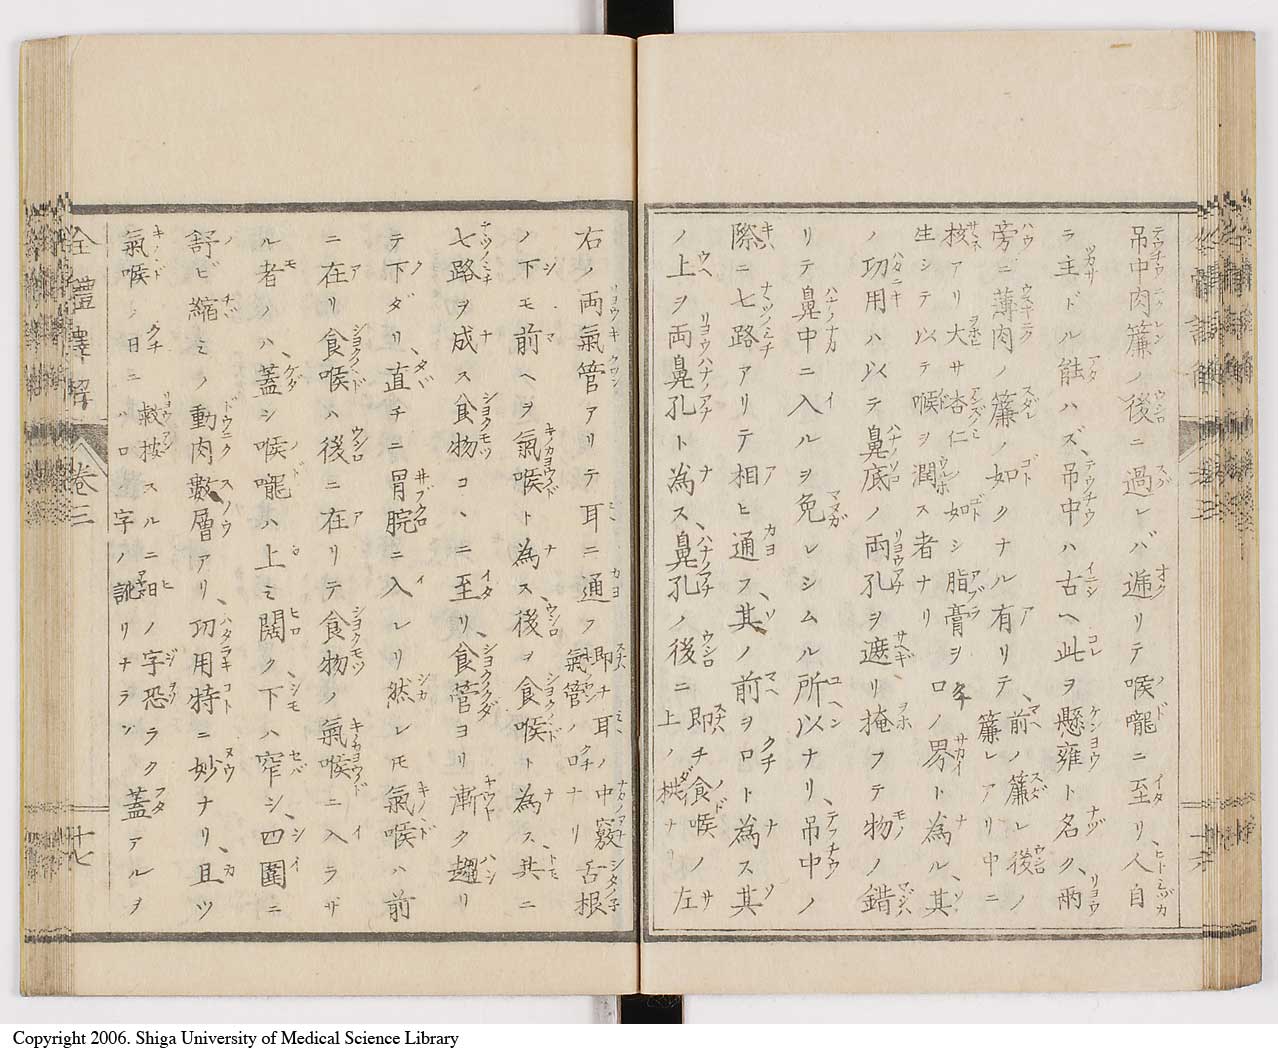 吊中肉簾ノ後ニ過レバ遞リテ喉嚨ニ至リ人自
ラ主ドル能ハズ吊中ハ古ヘ此ヲ懸雍ト名ク、兩
旁ニ薄肉ノ簾ノ如クナル有リテ、前ノ簾レ後ノ簾レアリ中ニ
核アリ大サ杏仁ノ如シ脂膏ヲ
生シテ以テ喉ヲ潤ス者ナリ
口ノ界ト為ル、其
ノ功用ハ以テ鼻底ノ両孔ヲ遮リ掩フテ物ノ錯
リテ鼻中ニ入ルヲ免レシムル所以ナリ、吊中ノ
際ニ七路アリテ相ヒ通フ、其ノ前ヲ口ト為ス其
ノ上ヲ両鼻孔ト為ス、鼻孔ノ後ニ上ノ
即チ食喉ノ左
右ノ両氣管アリテ耳ニ通フ
氣管ノ口ナリ
即チ耳ノ中竅舌根
ノ下モ前ヘヲ氣喉ト為ス、後ヲ食喉ト為ス、共ニ
七路ヲ成ス食物コヽニ至リ、食管ヨリ漸ク趨リ
テ下ダリ、直チニ胃脘ニ入レリ然レ𪜈氣喉ハ前
ニ在リ食喉ハ後ニ在リテ食物ノ氣喉ニ入ラザ
ル者ノハ、蓋シ喉嚨ハ上ミ闊ク下ハ窄シ、四圍ニ
舒ビ縮ミノ動肉數層アリ、功用特ニ妙ナリ、且ツ
氣喉ノ
口ニハ
蓋アルヲ
敕按スルニ
ノ字恐ラク
字ノ訛リナラン
全體譯解
卷三
十七
Copyright 2006. Shiga University of Medical Science Library